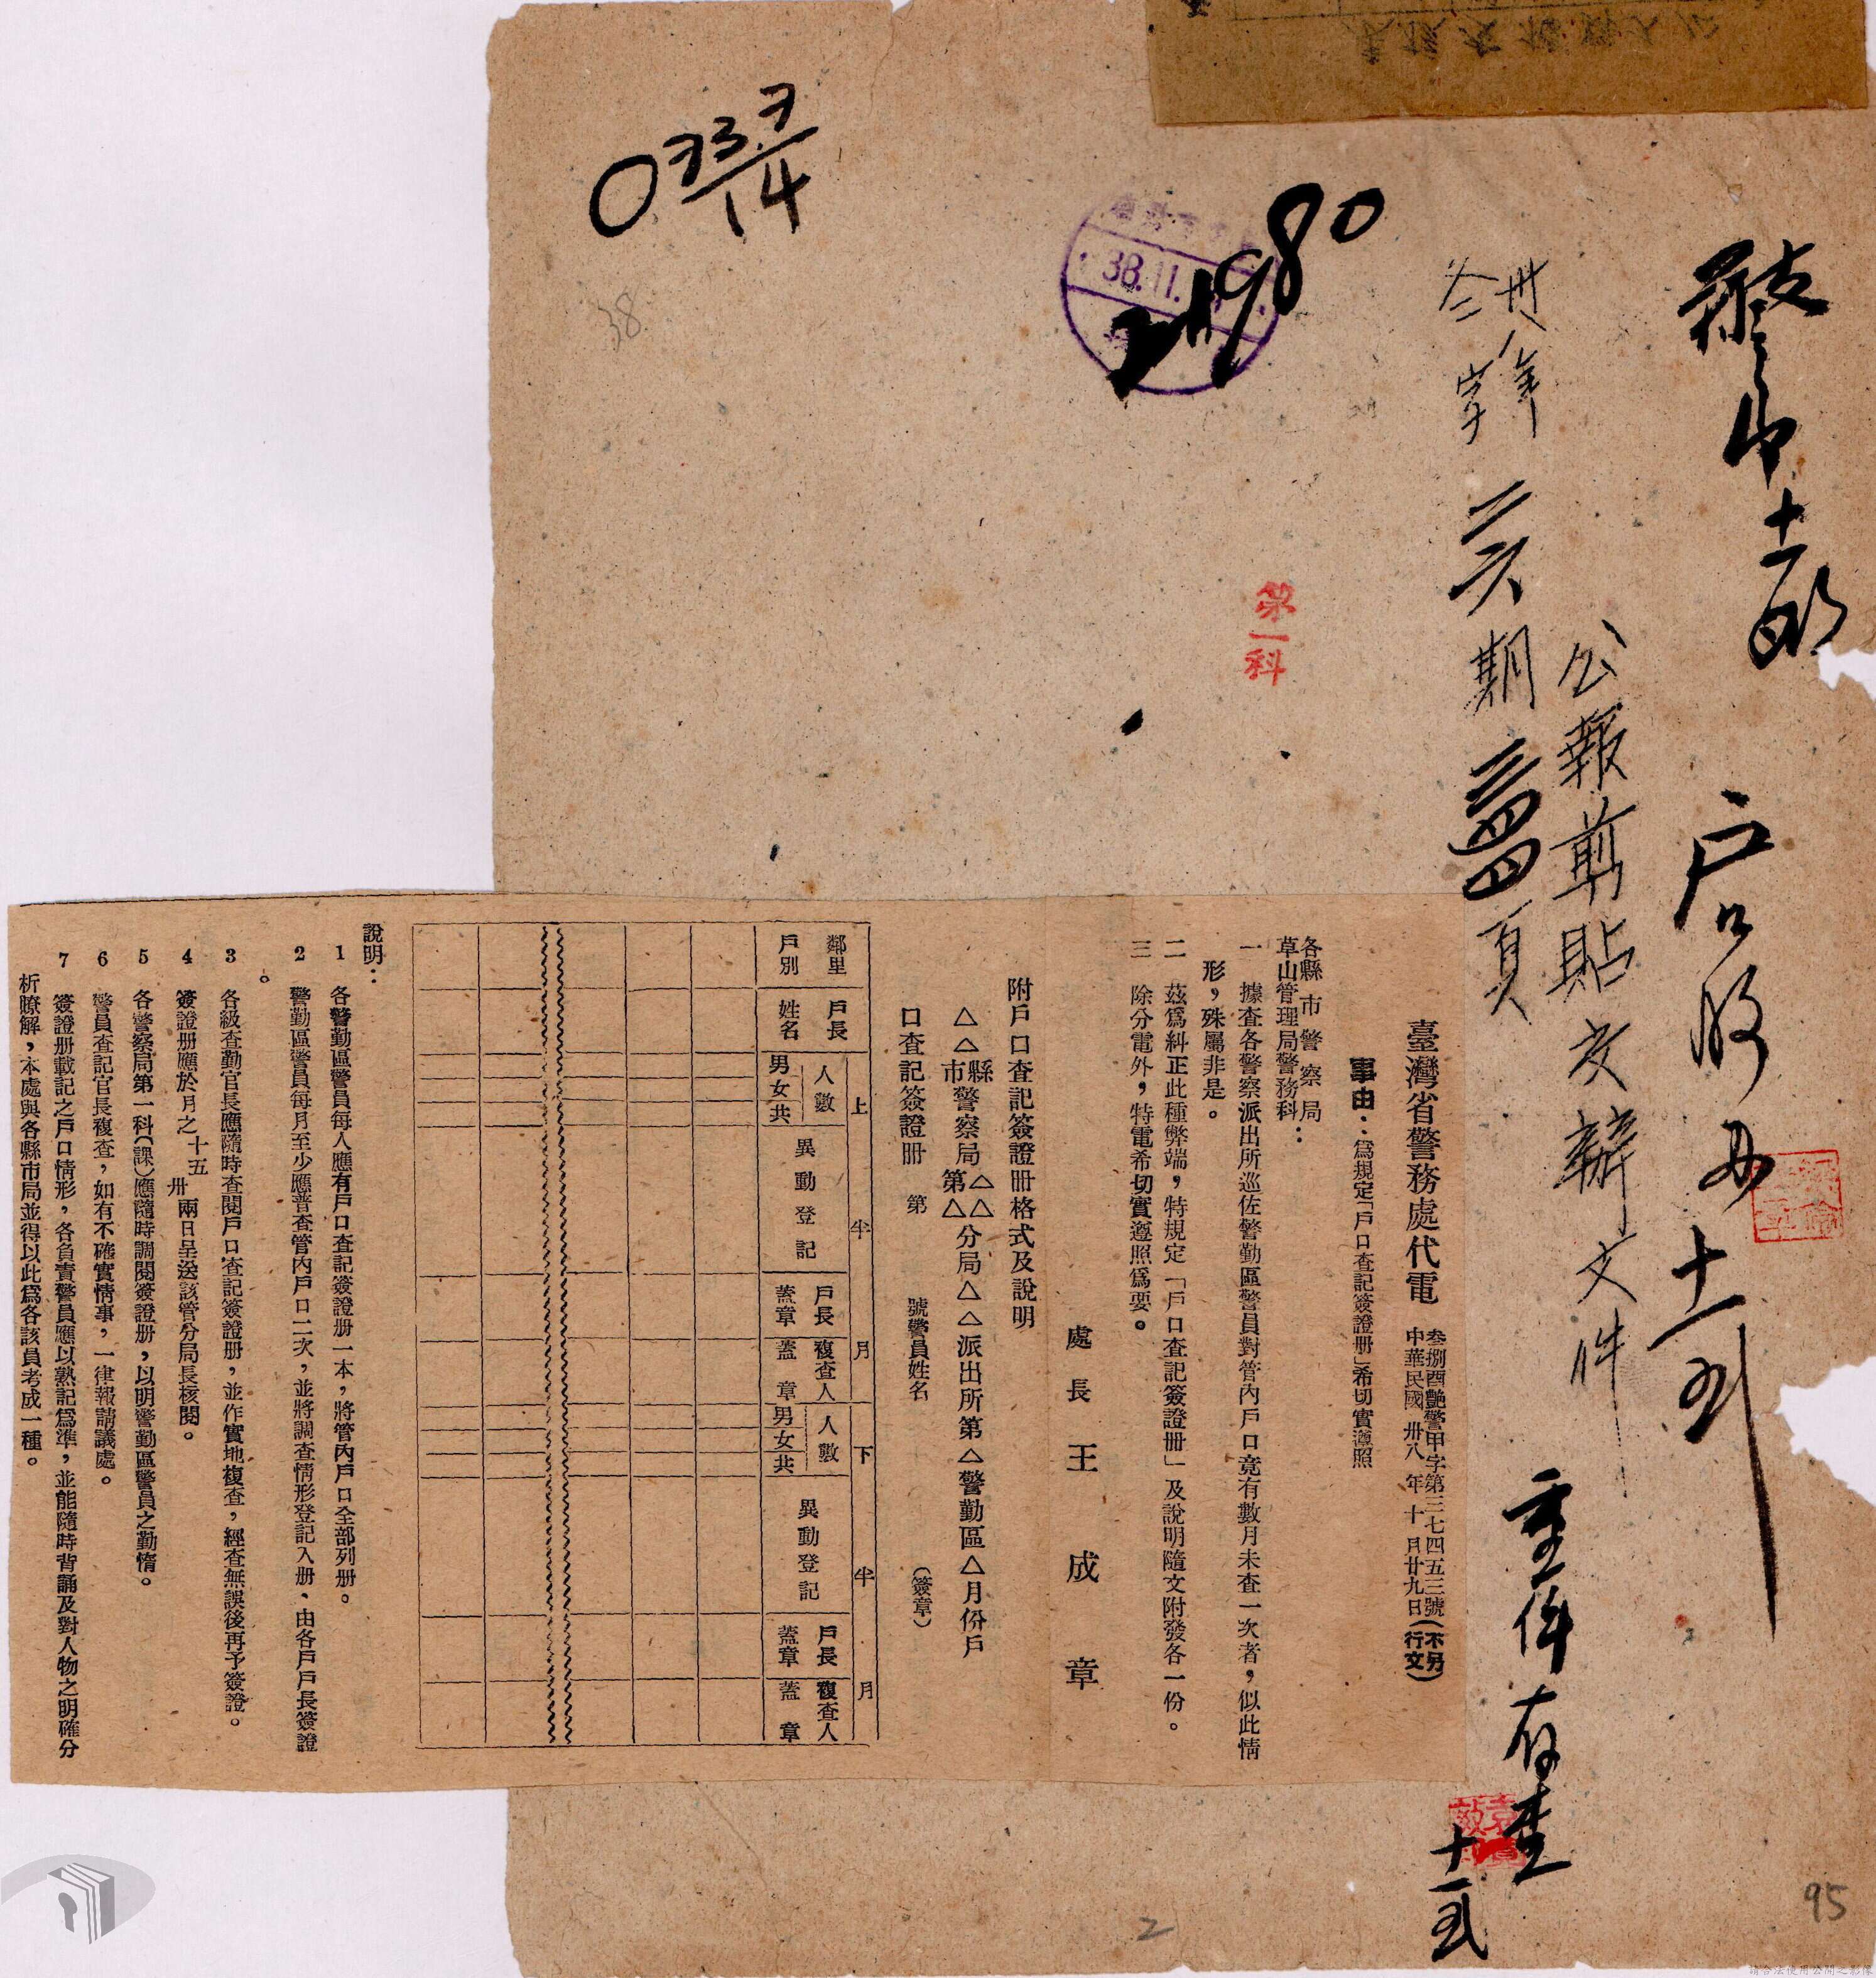 公報剪貼文辦文件
卅八年
冬字
期
頁
033.7/14
21980
38.11.
38
第一科
臺灣省警務處代電
叁捌酉艷警甲字第三七四五三號(不另行文)
中華民國卅八年十月廿九日
事由：為規定「戶口查記簽證册」希切實遵照
各縣市警察局
草山管理局警務科：
一 據查各警察派出所巡佐警勤區警員對管內戶口竟有數月未查一次者，似此情
形，殊屬非是。
二 茲為糾正此種弊端，特規定「戶口查記簽證册」及說明隨文附發各一份。
三 除分電外，特電希切實遵照為要。
處長 王成章
附戶口查記簽證册格式及說明
△△縣市警察局第△△△△分局△△派出所第△警勤區△月份戶
口查記簽證册 第 號警員姓名 (簽章)
上半月
下半月
鄰里戶別
戶長姓名
人數
男 女 共
異動登記
戶長蓋章
複查人蓋章
人數
男 女 共
異動登記
戶長蓋章
複查人蓋章
說明：
1 各警勤區警員每人應有戶口查記簽證册一本，將管內戶口全部列册。
2 警勤區警員每月至少應普查管內戶口二次，並將調查情形登記入册、由各戶戶長簽證
。
3 各級查勤官長應隨時查閱戶口查記簽證册，並作實地複查，經查無誤後再予簽證。
4 簽證册應於月之十五卅兩日呈送該管分局長核閱。
5 各警察局第一科(課)應隨時調閱簽證册，以明警勤區警員之勤惰。
6 警員查記官長複查，如有不確實情事，一律報請議處。
7 簽證册載記之戶口情形，各負責警員應以熟記為準，並能隨時背誦及對人物之明確分
析瞭解，本處與各縣市局並得以此為各該員考成一種。
存查
2
95
請合法使用公開之影像